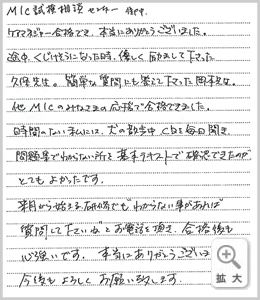 MIC試験相談センター 御中
ケアマネジャー合格でき、本当にありがとうございました。
途中、くじけそうになった時、優しく励まして下さった
久保先生。簡単な質問にも答えて下さった岡本先生。
他MICのみなさまの応援で合格できました。
時間のない私には、犬の散歩中CDを毎日聞き
問題集でわからない所を基本テキストで確認できたのが
とてもよかったです。
来月から始まる研修でも"わからない事があれば
質問して下さいね"とお電話を頂き、合格後も
心強いです。本当にありがとうございま
今後もよろしくお願い致します。
拡大